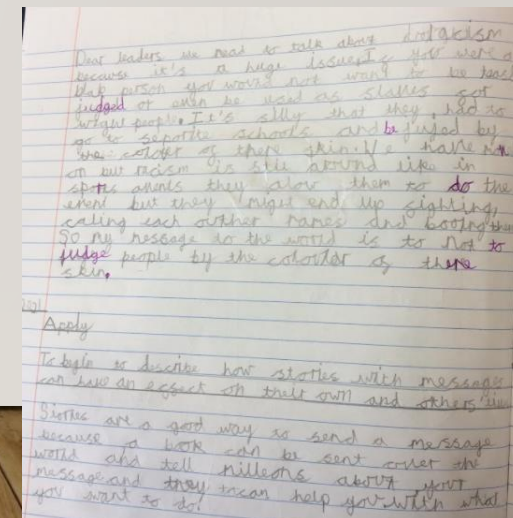 Dear leaders we need to talk about antiracism
because it's a huge issue. If you were a
blak person you would not want to be
judged or even be used as slaves for
wight people. It's silly that they had to
go to seperite schools and be judged by
the colour of there skin. We have
on but racism is still around like in
sports avents they alow them to do the
event but they might end up fighting,
caling each outher names and booing them
So my message to the world is to not to
judge people by the colour of there
skin.
2021
Apply
To begin to describe how stories with messages
can have an effect on their own and others
Stories are a good way to send a message
because a book can be sent over the
world and tell milleons about your
message and they can help you with what
you want to do.